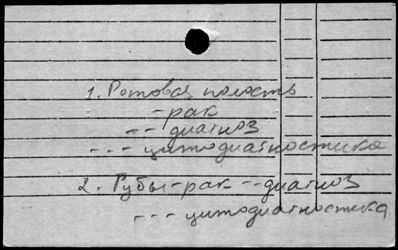 1. Ротовая полость
- рак
- - диагноз
- - - цитодиагностика
2. Губы - рак - - диагноз
- - - цитодиагностика